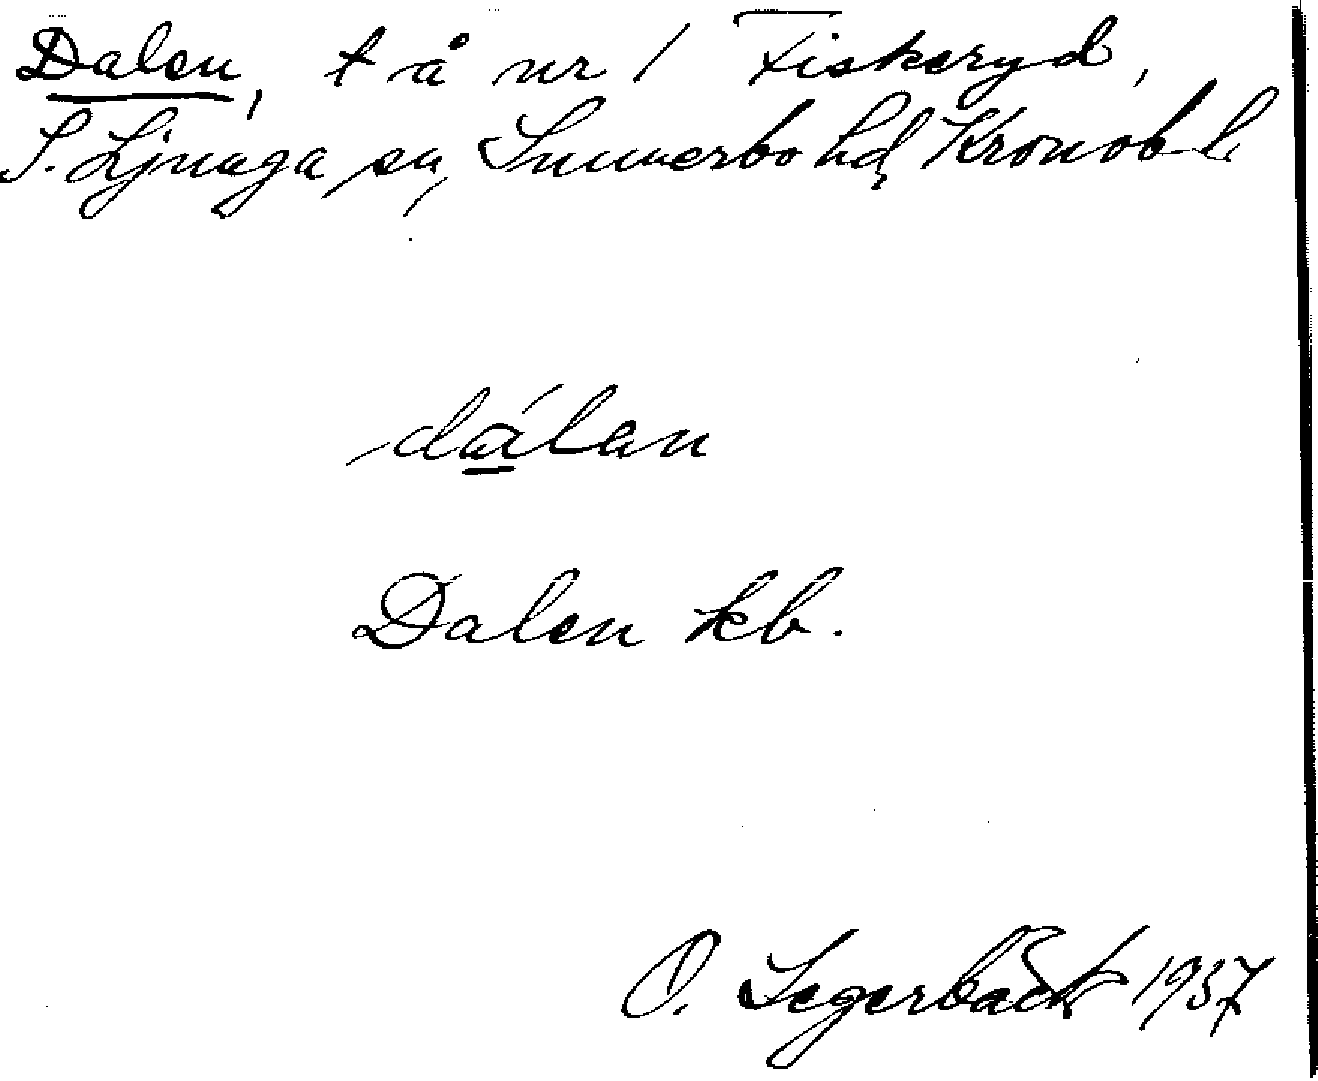 Dalen, t å nr 1 Fiskeryd,
S. Ljunga sn, Sunnerbo hd, Kronob l.
dálan
Dalen kb.
O. Segerbäck 1937